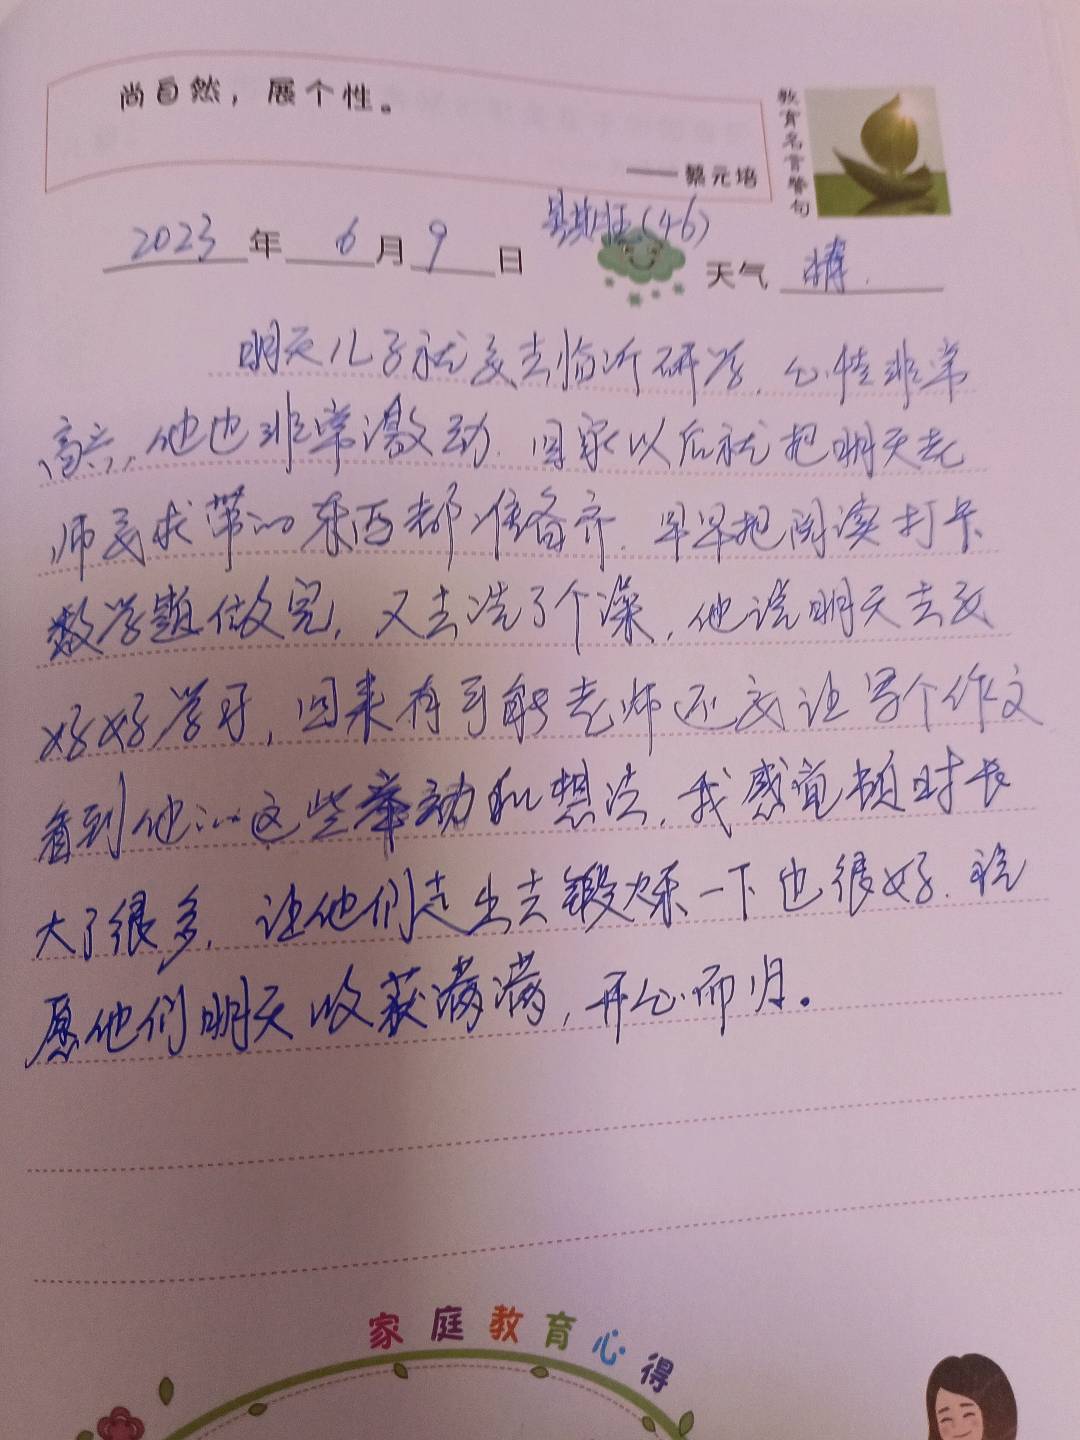 尚自然，展个性。
——蔡元培
教育名言警句
(46)
2023年6月9日 天气 晴.
明天儿子就要去临沂研学，心情非常
高兴，他也非常激动，回家以后就把明天老
师要求带的东西都准备齐，早早把阅读打卡
数学题做完，又去洗了个澡，他说明天去要
好好学习，回来有可能老师还要让写个作文
看到他的这些举动和想法，我感觉顿时长
大了很多，让他们走出去锻炼一下也很好，祝
愿他们明天收获满满，开心而归。
家庭教育心得